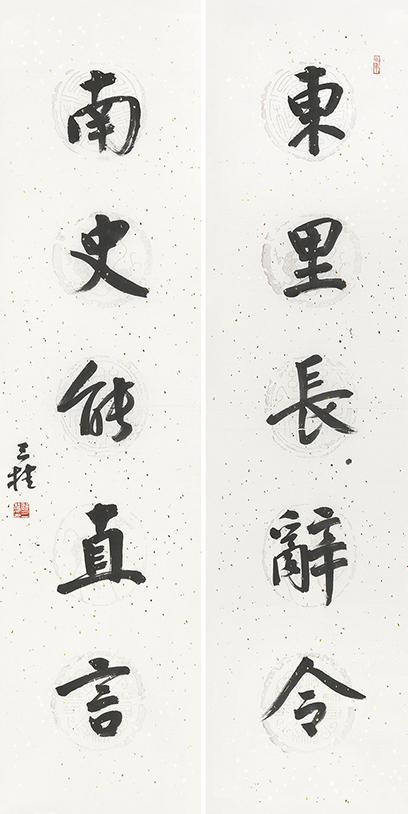 東里長辭令
南史能直言